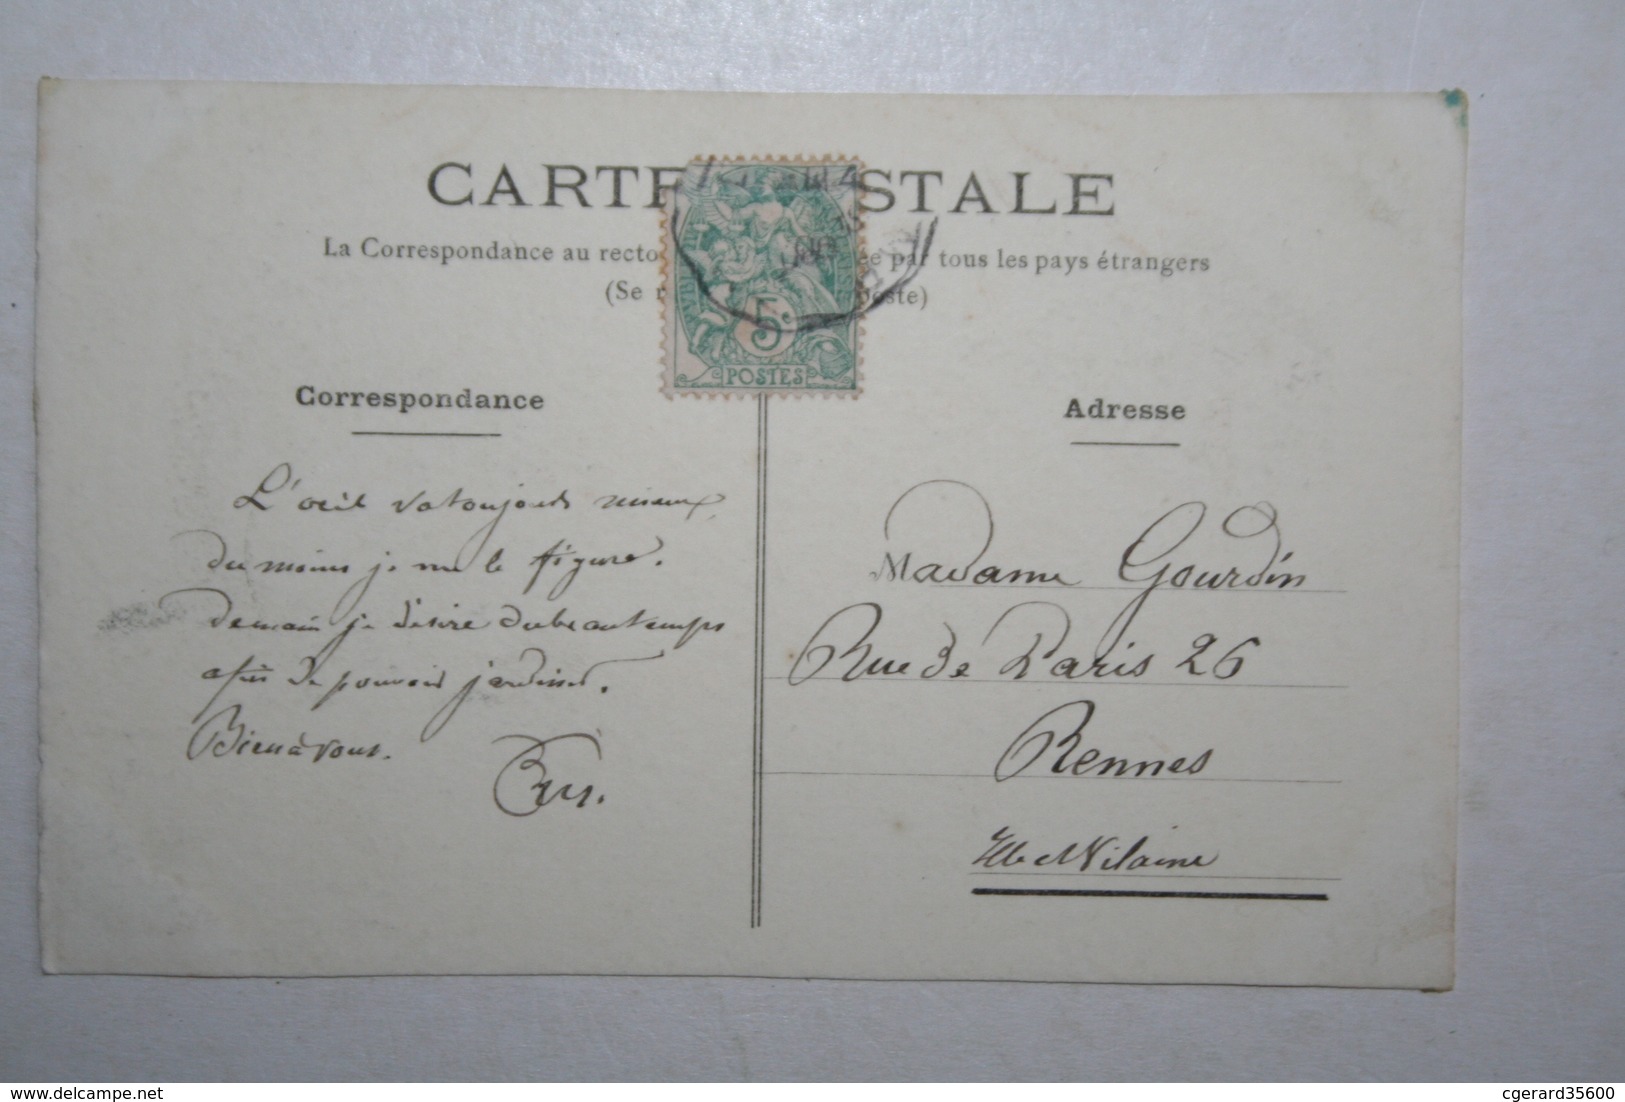 CARTE POSTALE
La Correspondance au recto par tous les pays étrangers
(Se poste)
5c
POSTES
Correspondance
Adresse
L'oeil va toujours mieux
du moins je me le figure.
demain je désire du beau temps
afin de pouvoir jardiner.
Bien à vous.
Madame Gourdin
Rue de Paris 26
Rennes
Ille et Vilaine
www.delcampe.net
cgerard35600